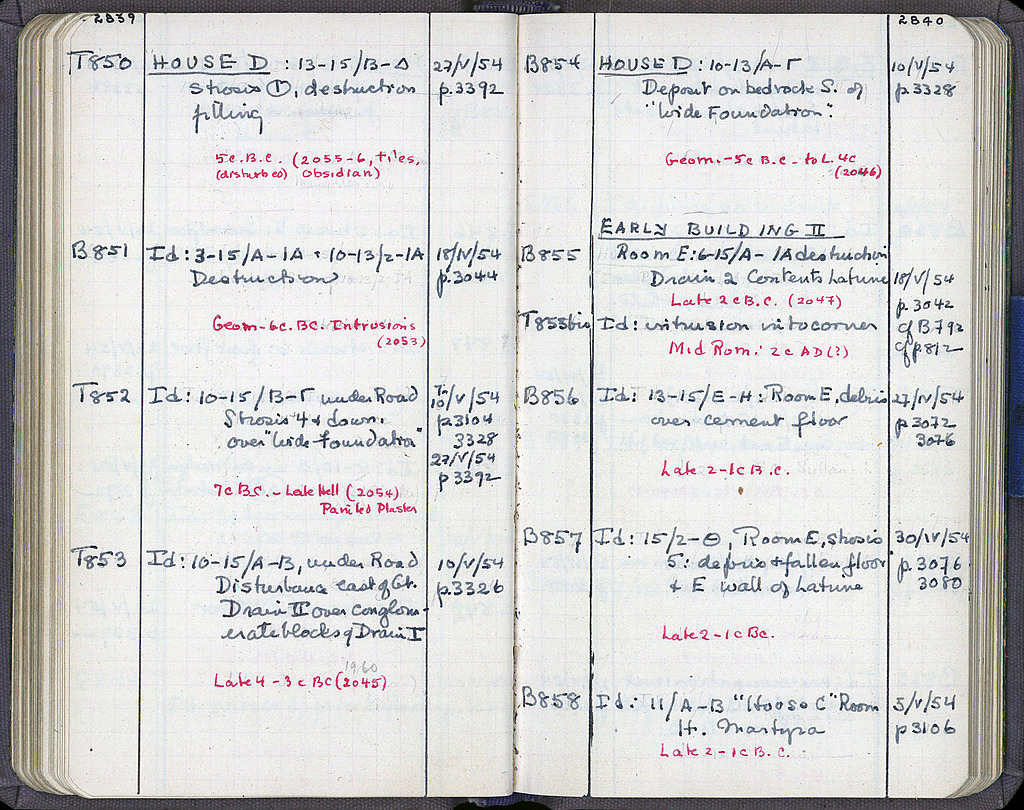 2839
T850 HOUSE D : 13-15/B-Δ 27/V/54
Strosis ①, destruction p.3392
filling
5c.B.C. (2055-6, tiles,
(disturbed) obsidian)
B851 Id: 3-15/A-1A + 10-13/2-1A 18/IV/54
Destruction p.3044
Geom-6c. BC. Intrusions
(2053)
T852 Id: 10-15/B-Γ under Road 10/V/54
Strosis 4 & down p3104
over "Wide Foundation" 3328
27/V/54
p3392
7c B.C. - Late Hell (2054)
Painted Plaster
T853 Id: 10-15/A-B, under Road 10/V/54
Disturbance east of Gt. p.3326
Drain II over conglom-
erate blocks of Drain I
1960
Late 4 - 3c BC (2045)
2840
B854 HOUSE D : 10-13/A-Γ 10/V/54
Deposit on bedrock S. of p3328
"Wide Foundation".
Geom.-5c B.C. - to L. 4c
(2046)
EARLY BUILDING II
B855 Room E: 6-15/A-1A destruction
Drain 2 Contents Latrine 18/V/54
Late 2c B.C. (2047) p.3042
T855bis Id: intrusion into corner cf B792
Mid Rom. 2c AD (?) cf p812
B856 Id: 13-15/E-H: Room E, debris 27/IV/54
over cement floor p3072
3076
Late 2-1c B.C.
B857 Id: 15/2-Θ, Room E, strosis 30/IV/54
5: debris & fallen floor p.3076
& E wall of Latrine 3080
Late 2-1c BC.
B858 Id: 11/A-B "House C" Room 5/V/54
H. Martyra p3106
Late 2-1c B.C.